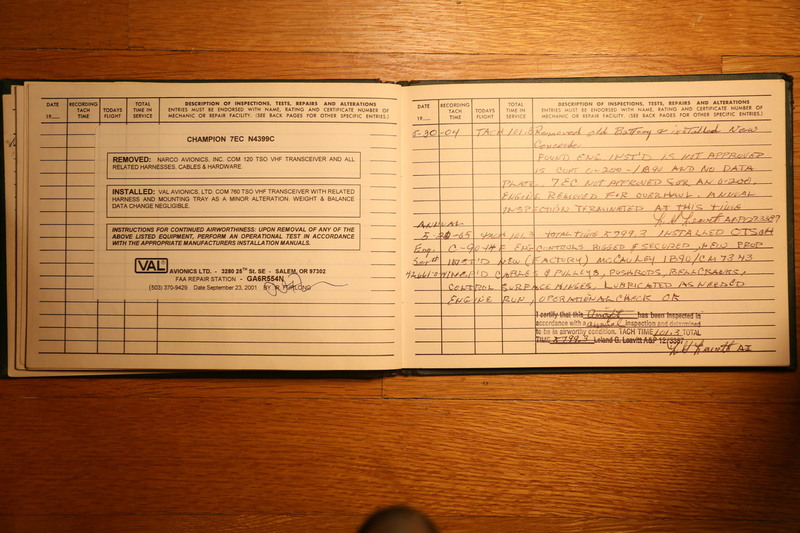 DATE
19___
RECORDING
TACH
TIME
TODAYS
FLIGHT
TOTAL
TIME IN
SERVICE
DESCRIPTION OF INSPECTIONS, TESTS, REPAIRS AND ALTERATIONS
ENTRIES MUST BE ENDORSED WITH NAME, RATING AND CERTIFICATE NUMBER OF
MECHANIC OR REPAIR FACILITY. (SEE BACK PAGES FOR OTHER SPECIFIC ENTRIES.)
CHAMPION 7EC N4399C
REMOVED: NARCO AVIONICS, INC. COM 120 TSO VHF TRANSCEIVER AND ALL
RELATED HARNESSES, CABLES & HARDWARE.
INSTALLED: VAL AVIONICS, LTD. COM 760 TSO VHF TRANSCEIVER WITH RELATED
HARNESS AND MOUNTING TRAY AS A MINOR ALTERATION. WEIGHT & BALANCE
DATA CHANGE NEGLIGIBLE.
INSTRUCTIONS FOR CONTINUED AIRWORTHINESS: UPON REMOVAL OF ANY OF THE
ABOVE LISTED EQUIPMENT, PERFORM AN OPERATIONAL TEST IN ACCORDANCE
WITH THE APPROPRIATE MANUFACTURERS INSTALLATION MANUALS.
VAL AVIONICS LTD. - 3280 25th St. SE - SALEM, OR 97302
FAA REPAIR STATION - GA6R554N
(503) 370-9429 Date September 23, 2001 BY JR FURLONG
DATE
19___
RECORDING
TACH
TIME
TODAYS
FLIGHT
TOTAL
TIME IN
SERVICE
DESCRIPTION OF INSPECTIONS, TESTS, REPAIRS AND ALTERATIONS
ENTRIES MUST BE ENDORSED WITH NAME, RATING AND CERTIFICATE NUMBER OF
MECHANIC OR REPAIR FACILITY. (SEE BACK PAGES FOR OTHER SPECIFIC ENTRIES.)
5-30-04 TACH 101.3 Removed old Battery & installed New
Concorde
FOUND ENG. INST'D IS NOT APPROVED
IS CONT O-200- AND NO DATA
PLATE. 7EC NOT APPROVED FOR AN O-200.
ENGINE REMOVED FOR OVERHAUL. ANNUAL
INSPECTION TERMINATED AT THIS TIME
ANNUAL
TACH 101.3 TOTAL TIME 5799.3 INSTALLED
Eng. C-90 ENG CONTROLS RIGGED & SECURED, NEW PROP
Ser# INST'D NEW (FACTORY) McCAULEY 1B90/CM 7343
INSP'D CABLES & PULLEYS, PUSHRODS, BELLCRANKS,
CONTROL SURFACE HINGES. LUBRICATED AS NEEDED
ENGINE RUN, OPERATIONAL CHECK OK
I certify that this Aircraft has been inspected in
accordance with a annual inspection and determined
to be in airworthy condition. TACH TIME 101.3 TOTAL
TIME 5799.3 Leland G. Leavitt A&P